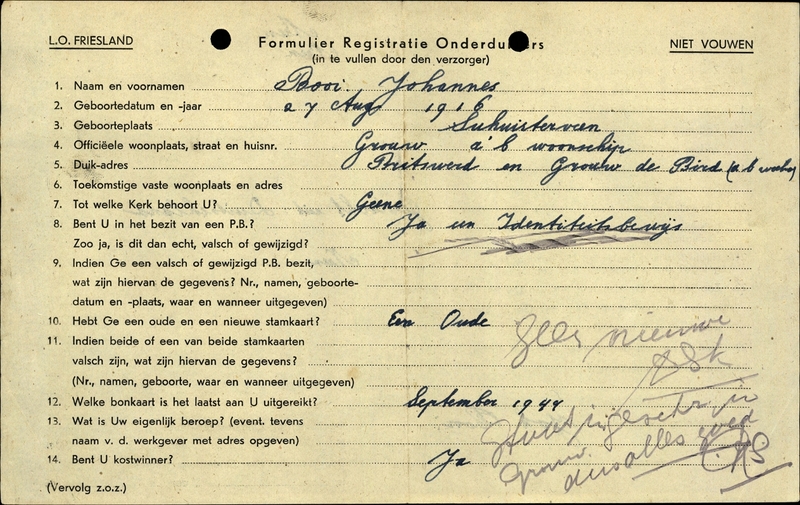 L.O. FRIESLAND
Formulier Registratie Onderduikers
NIET VOUWEN
(in te vullen door den verzorger)
1. Naam en voornamen Booi. Johannes
2. Geboortedatum en -jaar 27 Aug 1916
3. Geboorteplaats Suhuisterveen
4. Officiëele woonplaats, straat en huisnr. Grouw a/b woonschip
5. Duik-adres Britswerd en Grouw de Bird (a b
6. Toekomstige vaste woonplaats en adres
7. Tot welke Kerk behoort U? Geene
8. Bent U in het bezit van een P.B.? Ja en Identiteitsbewijs
Zoo ja, is dit dan echt, valsch of gewijzigd?
9. Indien Ge een valsch of gewijzigd P.B. bezit,
wat zijn hiervan de gegevens? Nr., namen, geboorte-
datum en -plaats, waar en wanneer uitgegeven)
10. Hebt Ge een oude en een nieuwe stamkaart? Een Oude
Geen nieuwe
11. Indien beide of een van beide stamkaarten
valsch zijn, wat zijn hiervan de gegevens?
(Nr., namen, geboorte, waar en wanneer uitgegeven)
12. Welke bonkaart is het laatst aan U uitgereikt? September 1944
13. Wat is Uw eigenlijk beroep? (event. tevens
naam v. d. werkgever met adres opgeven)
Staat ingeschr. in
Grouw.
dus alles goed
14. Bent U kostwinner? Ja
(Vervolg z.o.z.)